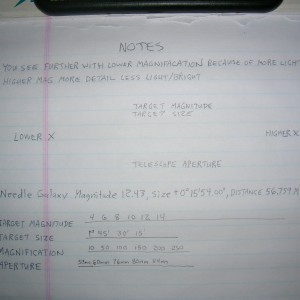 NOTES
YOU SEE FURTHER WITH LOWER MAGNIFACATION BECAUSE OF MORE LIGHT
HIGHER MAG MORE DETAIL LESS LIGHT/BRIGHT
TARGET MAGNITUDE
TARGET SIZE
LOWER X HIGHER X
TELESCOPE APERTURE
Needle Galaxy Magnitude 12.43, SIZE +0°15'54.00", DISTANCE
TARGET MAGNITUDE 4 6 8 10 12 14
TARGET SIZE 1° 45' 30' 15'
MAGNIFICATION 10 50 100 150 200 250
APERTURE 50mm 60mm 70mm 80mm